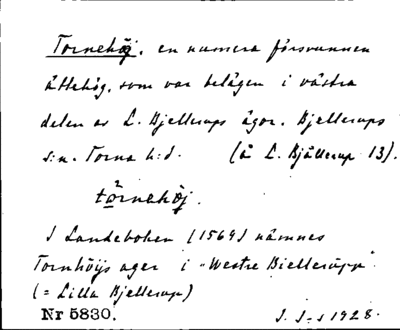 Tornehöj, en numera försvunnen
ättehög, som var belägen i västra
delen av L. Bjellerups ägor. Bjellerups
s:n. Torna h:d. (å L. Bjällerup 13).
tò̤rnehöj.
I Landeboken (1569) nämnes
Tornhöijs ager i "Westre Bielleröpp".
(= Lilla Bjellerup)
Nr 5830. J. S-s 1928.